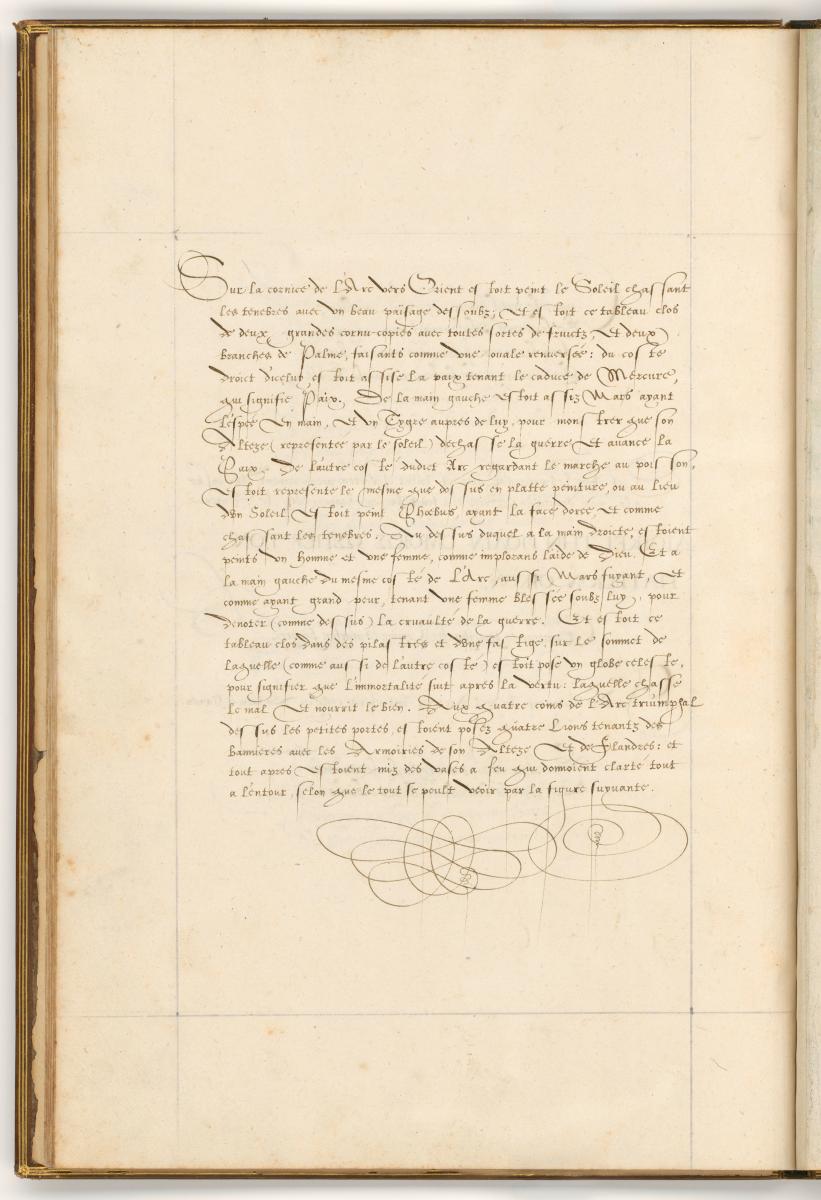 Sur la cornice de l'Arc vers Orient estoit peint le Soleil chassant
les tenebres avec un beau païsage dessoubz; Et estoit ce tableau clos
de deux grandes cornu-copies avec toutes sortes de fruictz, Et deux
branches de Palme, faisants comme une ovale renversée: du coste
droict d'iceluy estoit assise la paix tenant le caducé de Mercure,
qui signifie Paix. De la main gauche estoit assiz Mars ayant
l'espée en main, et un Tygre aupres de luy, pour monstrer que son
Alteze (representée par le soleil) dechasse la guerre Et avance la
Paix. De l'autre costé dudict Arc regardant le marche au poisson,
estoit represente le mesme que dessus en platte peinture, ou au lieu
d'un Soleil Estoit peint Phœbus, ayant la face dorée, et comme
chassant les tenebres. Au dessus duquel a la main droicte, estoient
peints un homme et une femme, comme implorans l'aide de Dieu. Et a
la main gauche du mesme costé de l'Arc, aussi Mars fuyant, Et
comme ayant grand peur, tenant une femme blessée soubz luy, pour
denoter (comme dessus) la cruaulté de la guerre. Et estoit ce
tableau clos dans des pilastres et d'une fastige, sur le sommet de
laquelle (comme aussi de l'autre coste) estoit pose un globe celeste,
pour signifier que l'immortalité suit apres la vertu: laquelle chasse
le mal Et nourrit le bien. Aux quatre coins de l'Arc triumphal
dessus les petites portes, estoient posez quatre Lions tenantz des
bannieres avec les Armoiries de son Alteze Et de Flandres: et
tout apres Estoient miz des vases a feu qui donnoient clarte tout
a l'entour, selon que le tout se peult veoir par la figure suyvante.